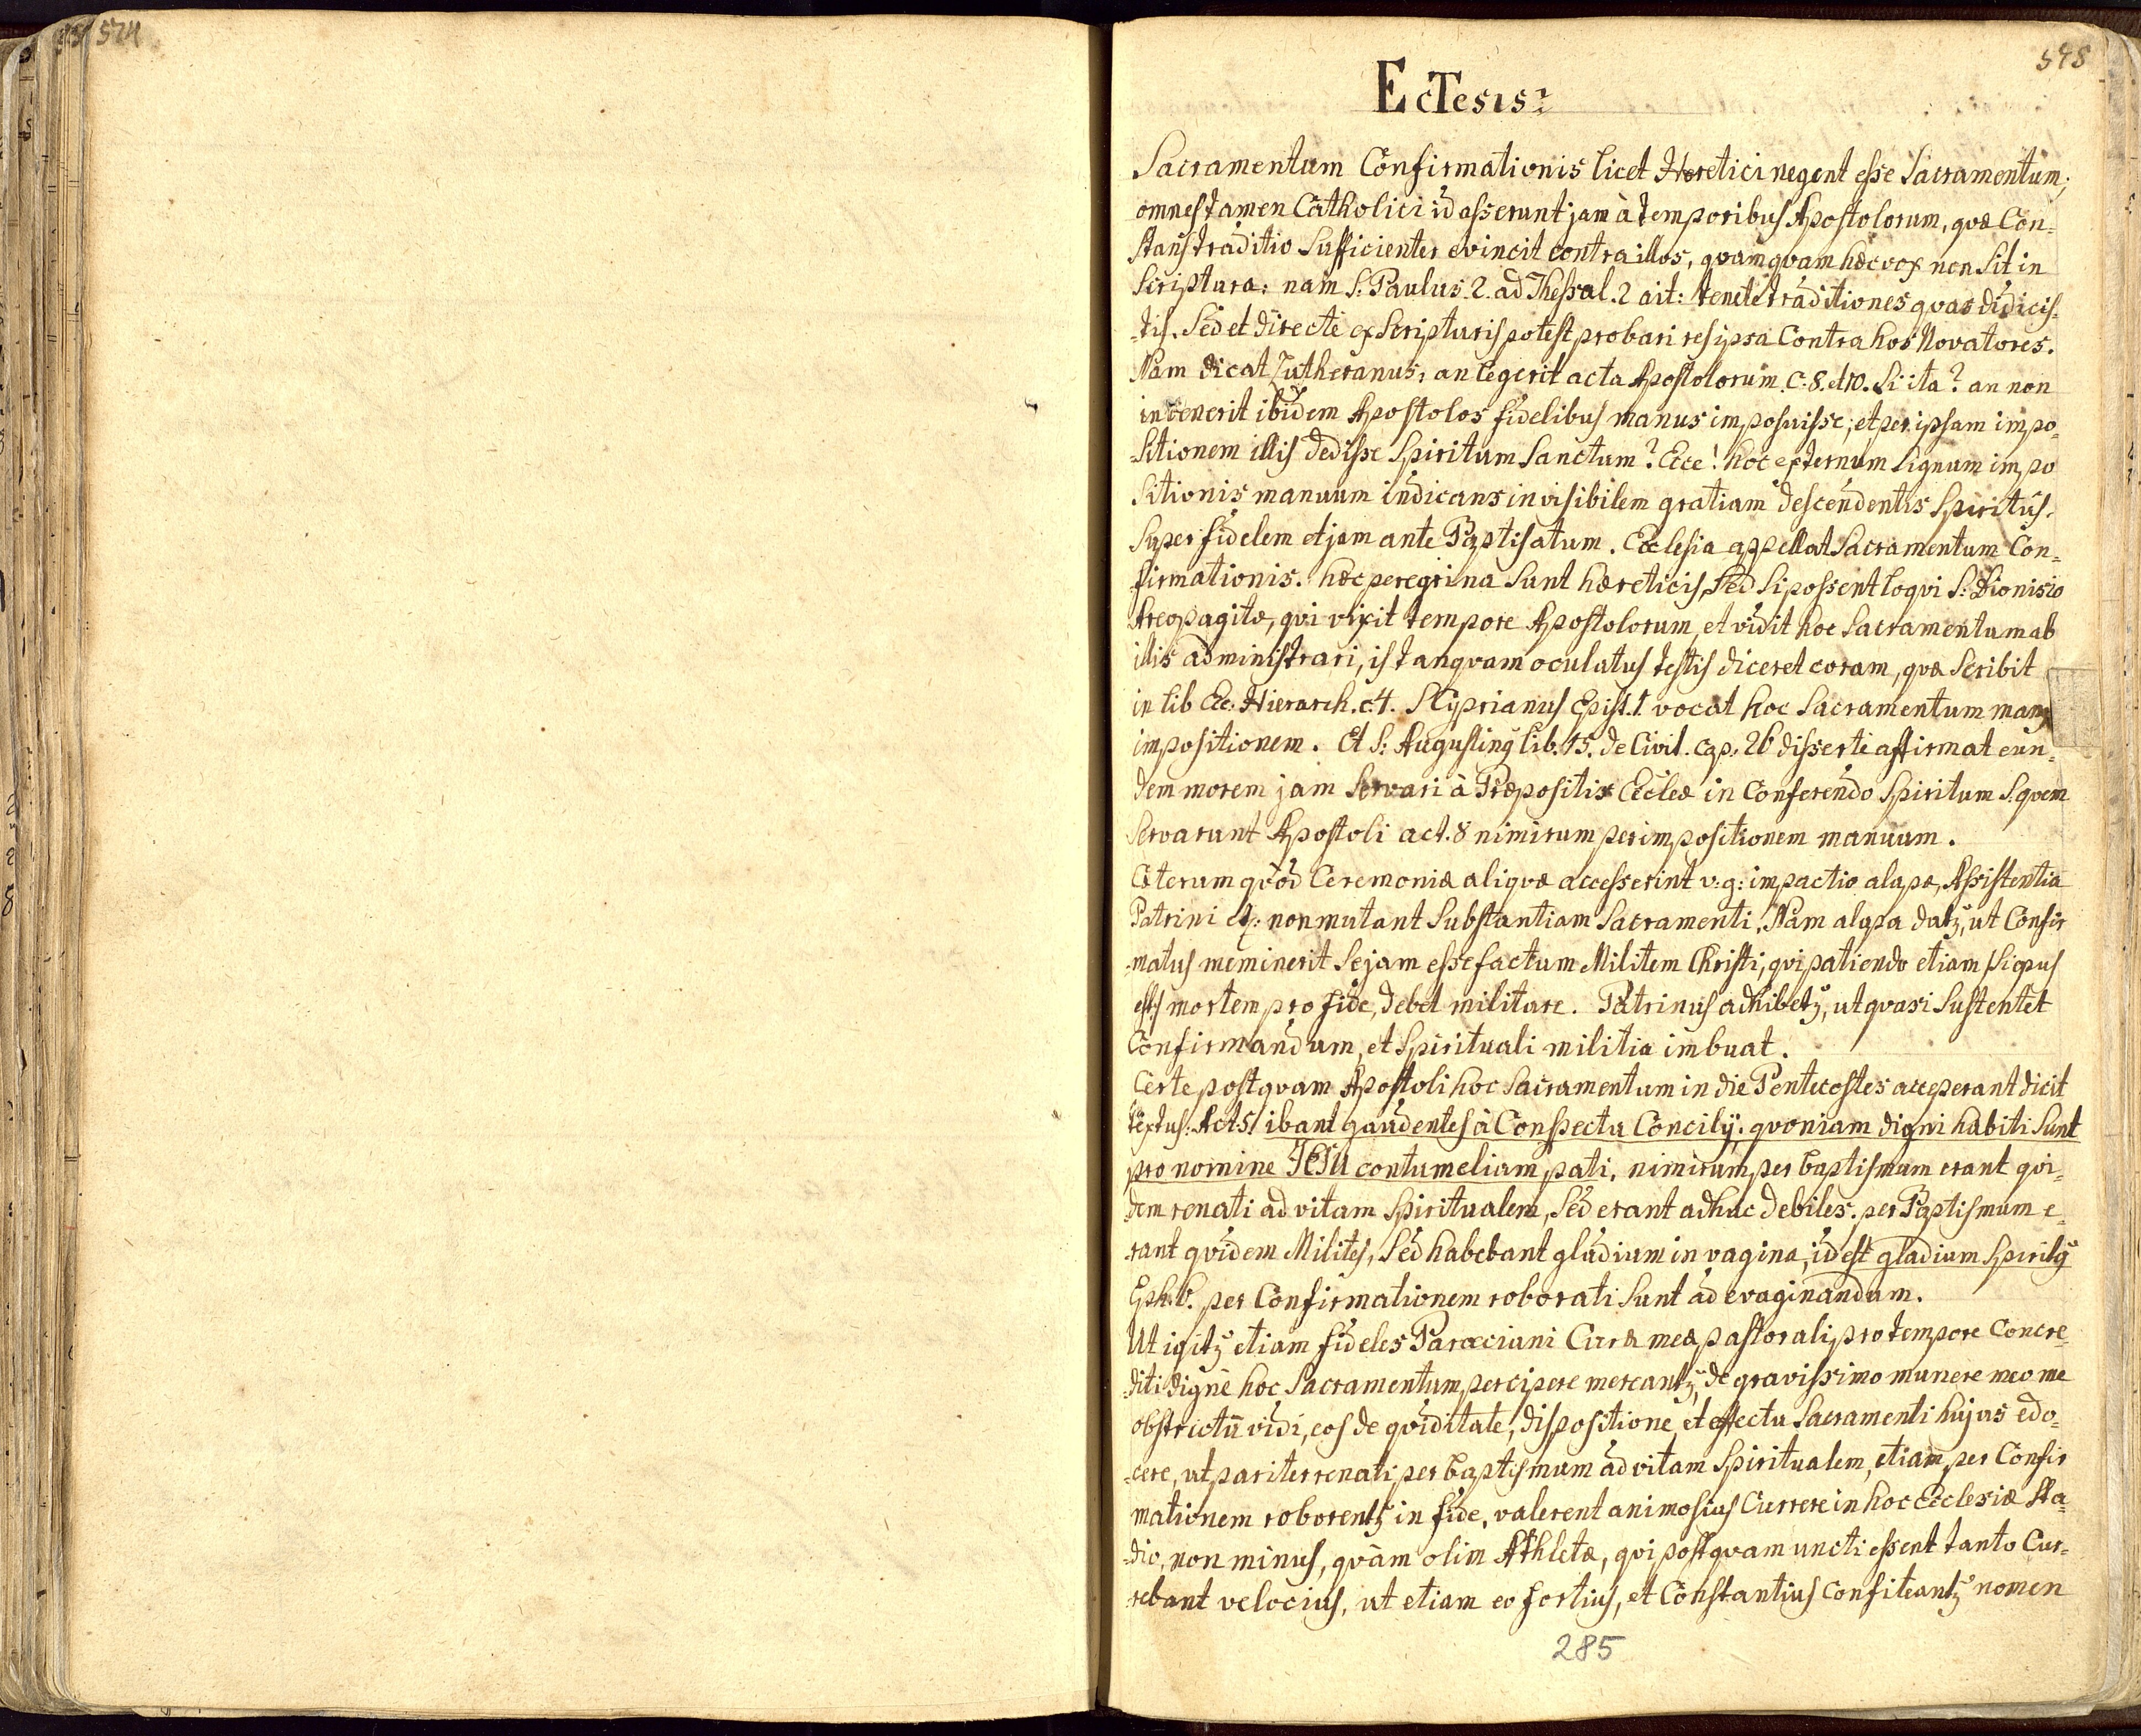 574
548
EcTesis
Sacramentum Confirmationis licet Heretici negent esse Sacramentum;
omnes tamen Catholici id asserunt jam à temporibus Apostolorum, qvæ Con-
stans traditio Sufficienter evincit contra illos, qvamqvam hæc vox non Sit in
Scriptura: nam S: Paulus 2. ad Thessal. 2 ait: tenete traditiones qvas didicis-
-tis. Sed et directè ex Scripturis potest probari res ipsa Contra hos Novatores.
Nam dicat Lutheranus, an legerit acta Apostolorum C: 8. et 10. Si ita? an non
invenerit ibidem Apostolos fidelibus manus imposuisse; et per ipsam impo-
-sitionem illis dedisse Spiritum Sanctum? Ecce! hoc externum Signum impo
sitionis manuum indicans invisibilem gratiam descendentis Spiritûs.
Super fidelem etjam ante Baptisatum. Ecclesia appellat Sacramentum Con-
firmationis. hæc peregrina Sunt hæreticis, Sed Si possent loqvi S: Dionisio
Areopagitæ, qvi vixit tempore Apostolorum, et vidit hoc Sacramentum ab
illis administrari, is tanqvam oculatus testis diceret coram, qvæ Scribit
in lib Ecc. Hierarch. c 4. S Cyprianus Epist. 1. vocat hoc Sacramentum
impositionem. Et S: Augusting lib. 15. de Civit. cap: 26 dissertè affirmat eun-
dem morem jam Servari à Præpositis Eccleæ in Conferendo Spiritum S. qvem
Servarunt Apostoli act. 8 nimirum per impositionem manuum.
Cæterum qvòd Ceremoniæ aliqvæ accesserint v: g: impactio alapæ, Assistentia
Patrini et: non mutant Substantiam Sacramenti. Nam alapa datʒ, ut Confir
-matus meminerit Se jam esse factum Militem Christi, qvi patiendo etiam /si opus
est/ mortem pro fide, debet militare. Patrinus adhibetʒ, ut qvasi Sustentet
Confirmandum, et Spirituali militia imbuat.
Certe postqvam Apostoli hoc Sacramentum in die Pentecostes acceperant dicit
textus: Act 5/ ibant gaudentes à Conspectu Concilij. qvoniam digni habiti Sunt
pro nomine JESU contumeliam pati, nimirum per baptismum erant qvi-
dem renati ad vitam Spiritualem, Sed erant adhuc debiles. per Baptismum e-
-rant qvidem Milites, Sed habebant gladium in vagina, id est gladium Spiritʒ
Eph. 6. per Confirmationem roborati Sunt ad evaginandum.
Ut igitʒ etiam fideles Paræciani Curæ meæ pastorali pro tempore Concre-
-diti dignè hoc Sacramentum percipere mereantʒ, de gravissimo munere meo me
obstrictū vidi, eos de qvidditate, dispositione, et effectu Sacramenti hujus edo-
-cere, ut pariter renati per baptismum ad vitam Spiritualem, etiam per Confir
mationem roborentʒ in fide, valerent animosius Currere in hoc Ecclesiæ Sta-
-dio, non minus, qvàm olim Athletæ, qvi postqvam uncti essent tanto Cur-
rebant velocius, ut etiam eo fortius, et Constantius Confiteantʒ nomen
285